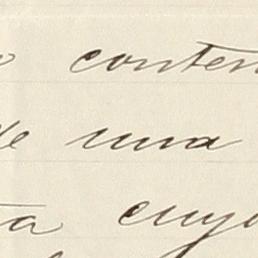 o conten
de una
ta cuyo